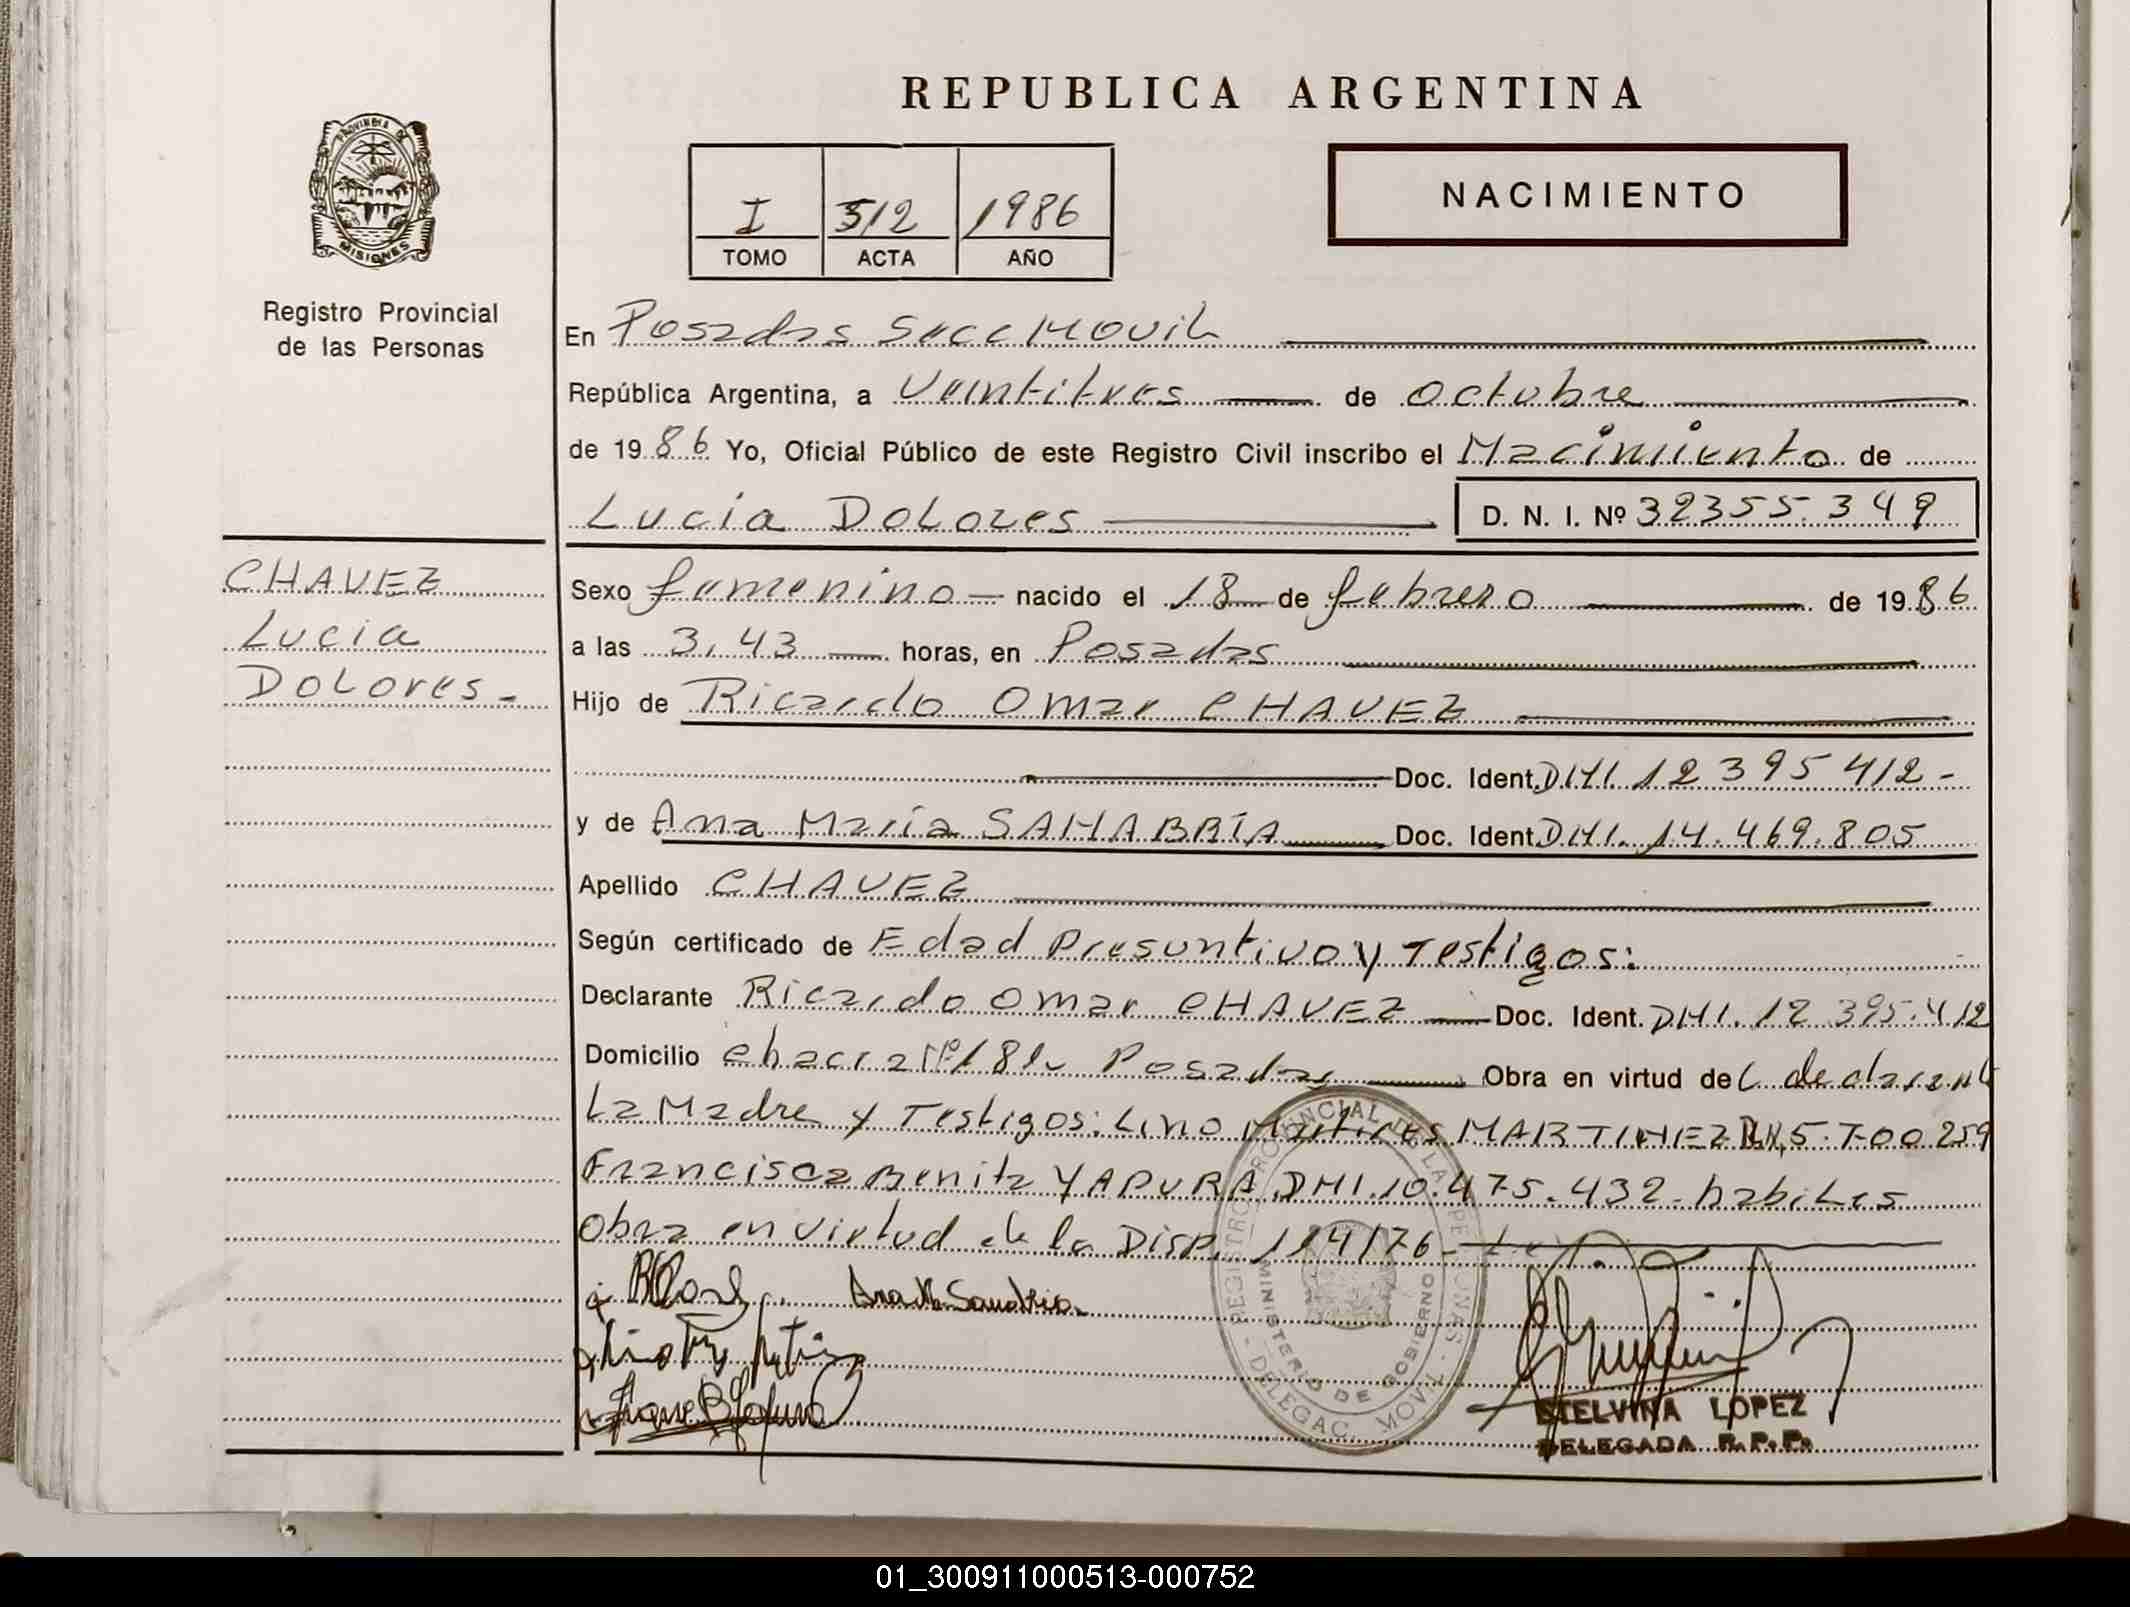 REPUBLICA ARGENTINA
PROVINCIA DE
MISIONES
Registro Provincial
de las Personas
I 512 1986
TOMO ACTA AÑO
NACIMIENTO
En Posadas Secc Movil
República Argentina, a Veintitres de octubre
de 1986 Yo, Oficial Público de este Registro Civil inscribo el Nacimiento de
Lucia DoLores D. N. I. Nº 32355.349
CHAVEZ
Lucia
DoLores.-
Sexo femenino nacido el 18 de febrero de 1986
a las 3,43 horas, en Posadas
Hijo de Ricardo Omar CHAVEZ
Doc. Ident. DNI. 12 395 412-
y de Ana Maria SANABRIA Doc. Ident. DNI. 14.469.805
Apellido CHAVEZ
Según certificado de Edad Presuntivo y Testigos:
Declarante Ricardo Omar CHAVEZ Doc. Ident. DNI. 12 395.412
Domicilio chacra Nº 181- Posadas Obra en virtud de
La Madre y Testigos: Lino MARTINEZ 5.700259
Francisca Benita YAPURA DNI.10.475.432- habiles
Obra en virtud de la Disp. 114/76-
REGISTRO PROVINCIAL DE LAS PERSONAS
MINISTERIO DE GOBIERNO
- DELEGAC. MOVIL -
Ana M Sanabria
STELVINA LOPEZ
DELEGADA R.P.P.
01_300911000513-000752